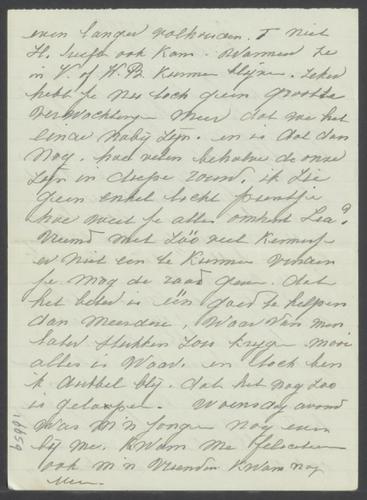 even langer volhouden. T niet
H. Juefa ook kom. Wanneer ze
in V. of W.B. kunnen blijven. Zeker
hebt je nu toch geen grootte
verwachtingen meer dat we het
einde nabij zijn. en is dat dan
nog. hoe velen behalve de onze
zijn in diepe rouw. ik zie
geen enkel licht puntje
hoe weet je alles omtrent Lea?
Vreemd met zóó veel kennissen
er niet een te kunnen vinden
je mag de raad geven. dat
het beter is één goed te helpen
dan meerdere, waar van men
later stukken los krijgt. mooi
alles is waar. en toch ben
ik dubbel blij. dat het nog zoo
is geloopen. Woensdag avond
was m'n jongen nog even
bij me. kwam me feliciteeren
ook m'n vrienden kwam nog
16659